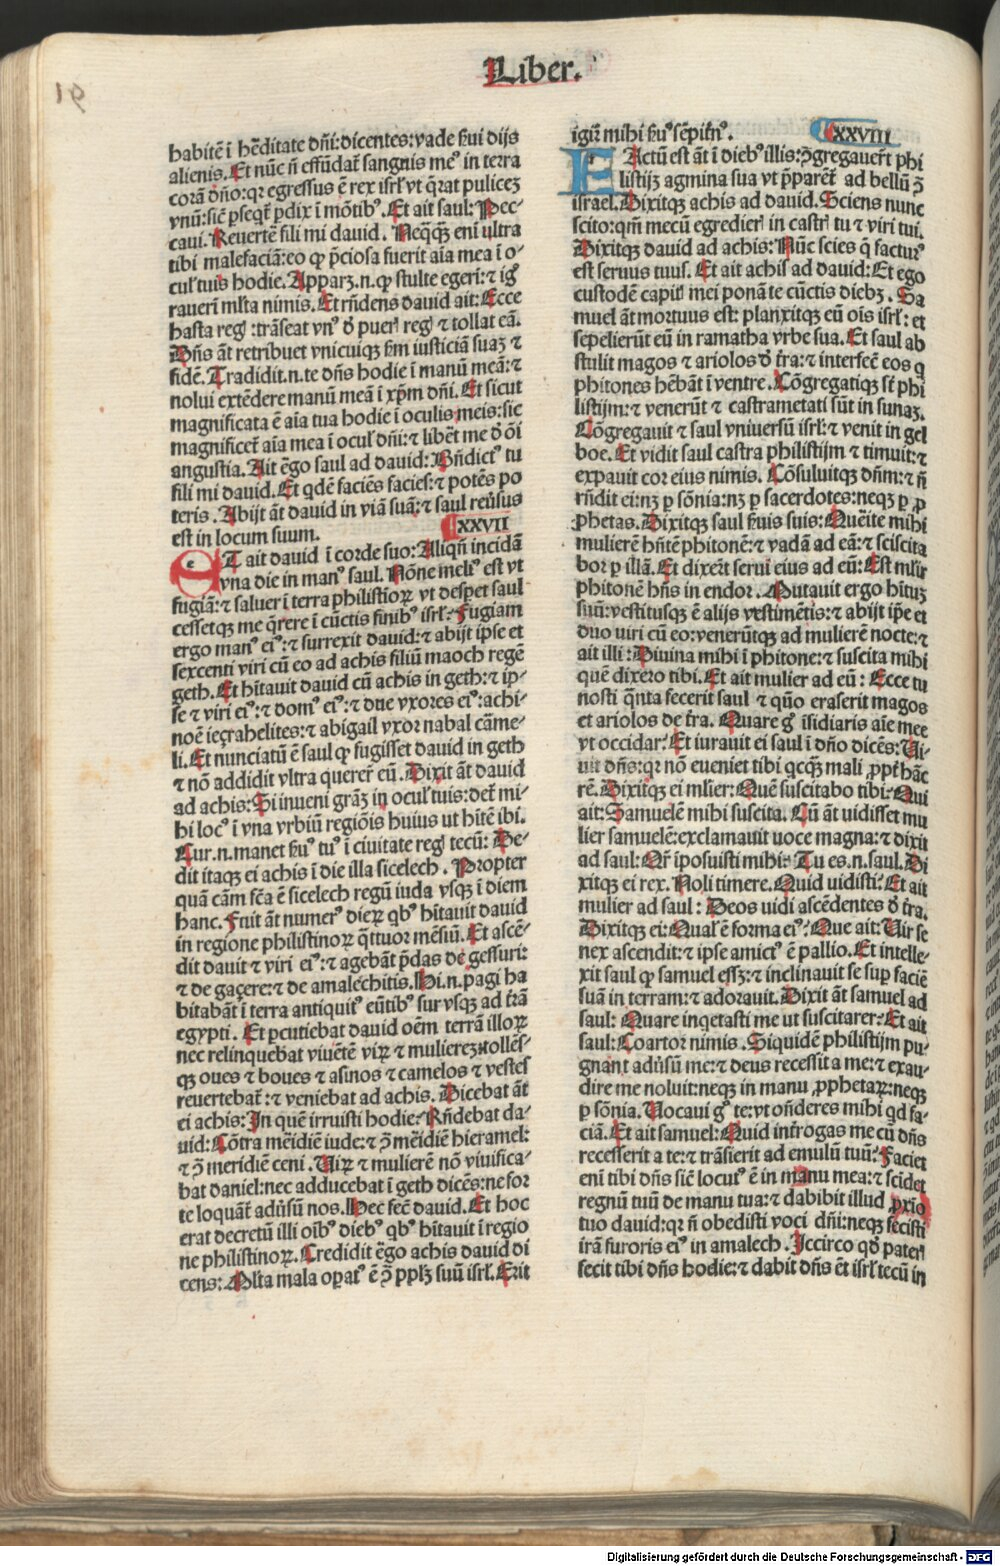 Liber.
habitē ī hēditate dn̄i: dicentes: vade ẜui dijs
alienis. Et nūc n̄ effūdat̄ sanguis meꝰ in terra
corā dn̄o: qr egressus ē rex isrl̄ vt q̄rat pulicez
vnū: sic̄ ꝑseqt̄ ꝑdix ī mōtibꝰ. Et ait saul: Pec-
caui. Reuertē fili mi dauid. Neqq̄ȝ eni vltra
tibi malefaciā: eo ꝙ p̄ciosa fuerit aīa mea ī o-
cul̓ tuis hodie. Apparȝ .n. ꝙ stulte egeri: ⁊ ig
raueri ml̄ta nimis. Et rn̄dens dauid ait: Ecce
hasta reg̓: trāseat vnꝰ d̓ puer̓ reg̓ ⁊ tollat eā.
Dn̄s āt retribuet vnicuiqȝ ẜm iusticiā suaȝ ⁊
fidē. Tradidit .n. te dn̄s hodie ī manū meā: ⁊
nolui extēdere manū meā ī xp̄m dn̄i. Et sicut
magnificata ē aīa tua hodie ī oculis meis: sic
magnificet̄ aīa mea ī ocul̓ dn̄i: ⁊ libēt me d̓ ōi
angustia. Ait ēgo saul ad dauid: Bn̄dictꝰ tu
fili mi dauid. Et qdē faciēs facies: ⁊ potēs po
teris. Abijt āt dauid in viā suā: ⁊ saul reūsus
est in locum suum. XXVII
ET ait dauid ī corde suo: Aliqn̄ incidā
vna die in manꝰ saul. Nōne meliꝰ est vt
fugiā: ⁊ saluer ī terra philistioꝝ vt desꝑet saul
cessetqȝ me q̄rere ī cūctis finibꝰ isrl̄: Fugiam
ergo manꝰ eiꝰ: ⁊ surrexit dauid: ⁊ abijt ipse et
sexcenti viri cū eo ad achis filiū maoch regē
geth. Et hītauit dauid cū achis in geth: ⁊ ip-
se ⁊ viri eiꝰ: ⁊ domꝰ eiꝰ: ⁊ due vxores eiꝰ: achi-
noē ieçrahelites: ⁊ abigail vxor nabal cāme-
li. Et nunciatū ē saul ꝙ fugisset dauid in geth
⁊ nō addidit vltra querer̄ eū. Dixit āt dauid
ad achis: Si inueni grāȝ in ocul̓ tuis: det̄ mi-
hi locꝰ ī vna vrbiū regiōis huius ut hītē ibi.
Cur .n. manet ẜuꝰ tuꝰ ī ciuitate reg̓ tecū: De-
dit itaqȝ ei achis ī die illa sicelech. Propter
quā cām fc̄a ē sicelech regū iuda vsqȝ ī diem
hanc. Fuit āt numerꝰ dieꝝ qbꝰ hītauit dauid
in regione philistinoꝝ q̄ttuor mēsiū. Et ascē-
dit dauit ⁊ viri eiꝰ: ⁊ agebāt p̄das de gessuri:
⁊ de gaçere: ⁊ de amalechitis. Hi .n. pagi ha
bitabāt ī terra antiquitꝰ eūtibꝰ sur vsqȝ ad t̄rā
egypti. Et ꝑcutiebat dauid oēm terrā illoꝝ
nec relinquebat viuētē viꝝ ⁊ mulierez: tollēs-
qȝ oues ⁊ boues ⁊ asinos ⁊ camelos ⁊ vestes
reuertebat̄: ⁊ veniebat ad achis. Dicebat āt
ei achis: In quē irruisti hodie: Rn̄debat da-
uid: Cōtra mēidiē iude: ⁊ ꝯ̄ mēidiē hieramel:
⁊ ꝯ̄ meridiē ceni. Uiꝝ ⁊ mulierē nō viuifica-
bat daniel: nec adducebat ī geth dicēs: ne for
te loquāt̄ adūsū nos. Hec fec̄ dauid. Et hoc
erat decretū illi oībꝰ diebꝰ qbꝰ hītauit ī regio
ne philistinoꝝ. Credidit ēgo achis dauid di
cens: Ml̄ta mala oꝑatꝰ ē ꝯ̄ ppl̄ȝ suū isrl̄. Erit
igit̄ mihi ẜuꝰ sēpit̄nꝰ. XXVIII
FActū est āt ī diebꝰ illis: ꝯ̄gregauer̄t phi
listijȝ agmina sua vt p̄parēt̄ ad bellū ꝯ̄
israel. Dixitqȝ achis ad dauid. Sciens nunc
scito: qm̄ mecū egredier̓ in castr̓ tu ⁊ viri tui.
Dixitqȝ dauid ad achis: Nūc scies q̄ facturꝰ
est seruus tuus. Et ait achis ad dauid: Et ego
custodē capit̓ mei ponā te cūctis diebȝ. Sa
muel āt mortuus est: planxitqȝ eū oīs isrl̄: et
sepelierūt eū in ramatha vrbe sua. Et saul ab
stulit magos ⁊ ariolos d̓ t̄ra: ⁊ interfec̄ eos q
phitones hēbāt ī ventre. Cōgregatiqȝ st̄ phi
listijm: ⁊ venerūt ⁊ castrametati sūt in sunaȝ.
Cōgregauit ⁊ saul vniuersū isrl̄: ⁊ venit in gel
boe. Et vidit saul castra philistijm ⁊ timuit: ⁊
expauit cor eius nimis. Cōsuluitqȝ dn̄m: ⁊ n̄
rn̄dit ei: nȝ ꝑ sōnia: nȝ ꝑ sacerdotes: neqȝ ꝑ ꝓ
phetas. Dixitqȝ saul ẜuis suis: Quēite mihi
mulierē hn̄tē phitonē: ⁊ vadā ad eā: ⁊ sciscita
bor ꝑ illā. Et dixer̄t serui eius ad eū: Est ml̄ir
phitonē hn̄s in endor. Mutauit ergo hītuȝ
suū: vestitusqȝ ē alijs vestimētis: ⁊ abijt ip̄e et
duo viri cū eo: venerūtqȝ ad mulierē nocte: ⁊
ait illi: Diuina mihi ī phitone: ⁊ suscita mihi
quē dixero tibi. Et ait mulier ad eū: Ecce tu
nosti q̄nta fecerit saul ⁊ quō eraserit magos
et ariolos de t̄ra. Quare gͦ īsidiaris aīe mee
vt occidar: Et iurauit ei saul ī dn̄o dicēs: Ui-
uit dn̄s: qr nō eueniet tibi qcq̄ȝ mali ꝓpt̄ hāc
rē. Dixitqȝ ei mlier: Quē suscitabo tibi: Qui
ait: Samuelē mihi suscita. Cū āt uidisset mu
lier samuelē: exclamauit uoce magna: ⁊ dixit
ad saul: Qr̄ īposuisti mihi: Tu es .n. saul. Di
xitqȝ ei rex. Noli timere. Quid uidisti: Et ait
mulier ad saul: Deos uidi ascēdentes d̓ t̄ra.
Dixitqȝ ei: Qual̓ ē forma eiꝰ: Que ait: Uir se
nex ascendit: ⁊ ipse amictꝰ ē pallio. Et intelle-
xit saul ꝙ samuel essȝ: ⁊ inclinauit se suꝑ faciē
suā in terram: ⁊ adorauit. Dixit āt samuel ad
saul: Quare inqetasti me ut suscitarer: Et ait
saul: Coartor nimis. Siquidē philistijm pu-
gnant adūsū me: ⁊ deus recessit a me: ⁊ exau-
dire me noluit: neqȝ in manu ꝓphetaꝝ: neqȝ
ꝑ sōnia. Uocaui gͦ te: vt on̄deres mihi qd fa-
ciā. Et ait samuel: Quid int̄rogas me cū dn̄s
recesserit a te: ⁊ trāsierit ad emulū tuū: Faciet
eni tibi dn̄s sic̄ locutꝰ ē in manu mea: ⁊ scidet
regnū tuū de manu tua: ⁊ dabibit illud ꝓxīo
tuo dauid: qr n̄ obedisti voci dn̄i: neqȝ fecisti
irā furoris eiꝰ in amalech. Iccirco qd̓ pater̓
fecit tibi dn̄s hodie: ⁊ dabit dn̄s ēt isrl̄ tecū in
Digitalisierung gefördert durch die Deutsche Forschungsgemeinschaft - DFG